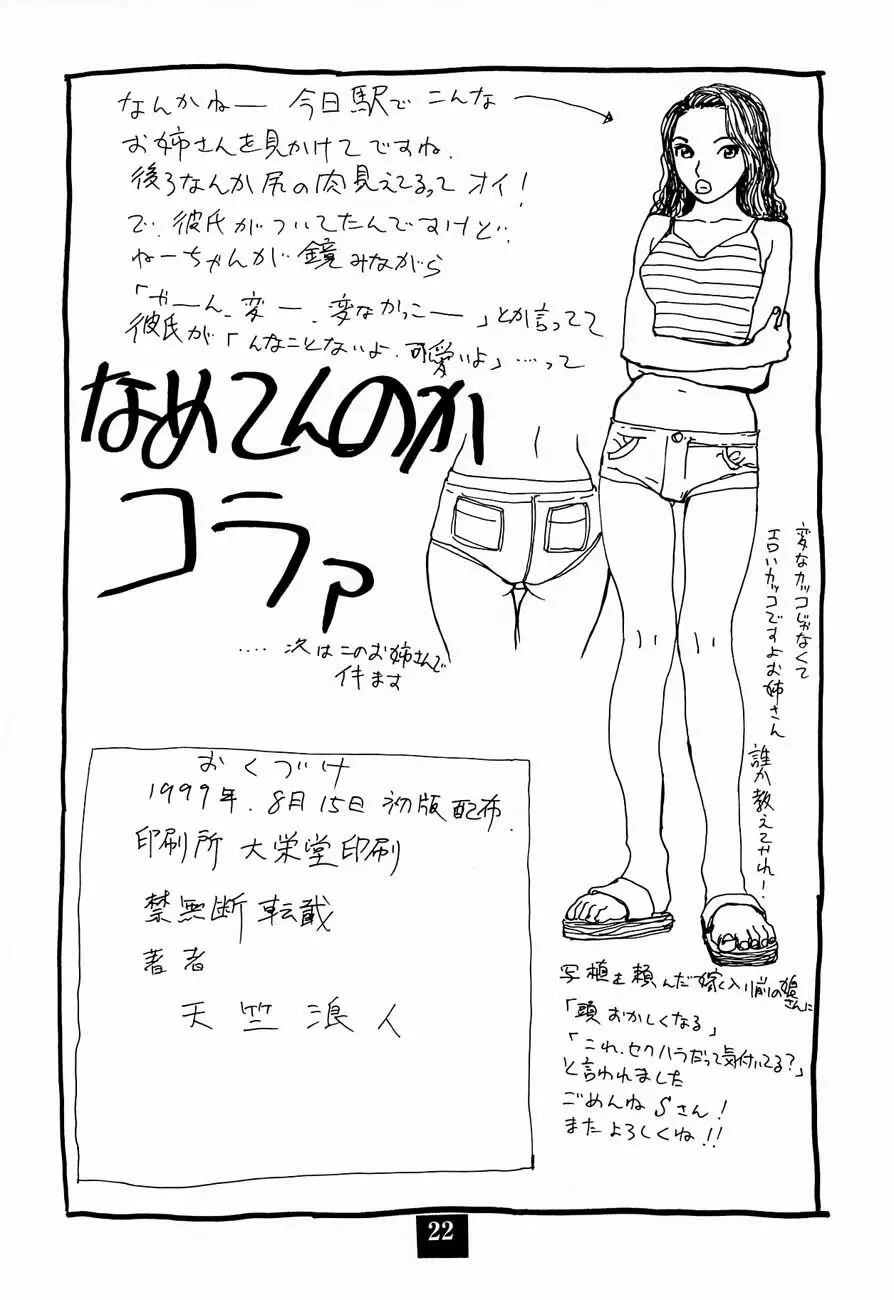 なんかねー 今日駅でこんな
お姉さんを見かけてですね.
後ろなんか尻の肉見えてるって オイ!
で.彼氏がついてたんですけど.
ねーちゃんが鏡みながら
「やーん.変ー.変なかっこー」とか言ってて
彼氏が「んなことないよ.可愛いよ」…って
なめてんのか
コラァ
…. 次はこのお姉さんで
イキます
変なカッコじゃなくて
エロいカッコですよお姉さん
誰か教えてやれ!
おくづけ
1999年.8月15日 初版配布.
印刷所 大栄堂印刷
禁無断転載
著者
天竺浪人
写植を頼んだ嫁入り前の娘さんに
「頭おかしくなる」
「これ.セクハラだって気付いてる?」
と言われました
ごめんねSさん!
またよろしくね!!
22